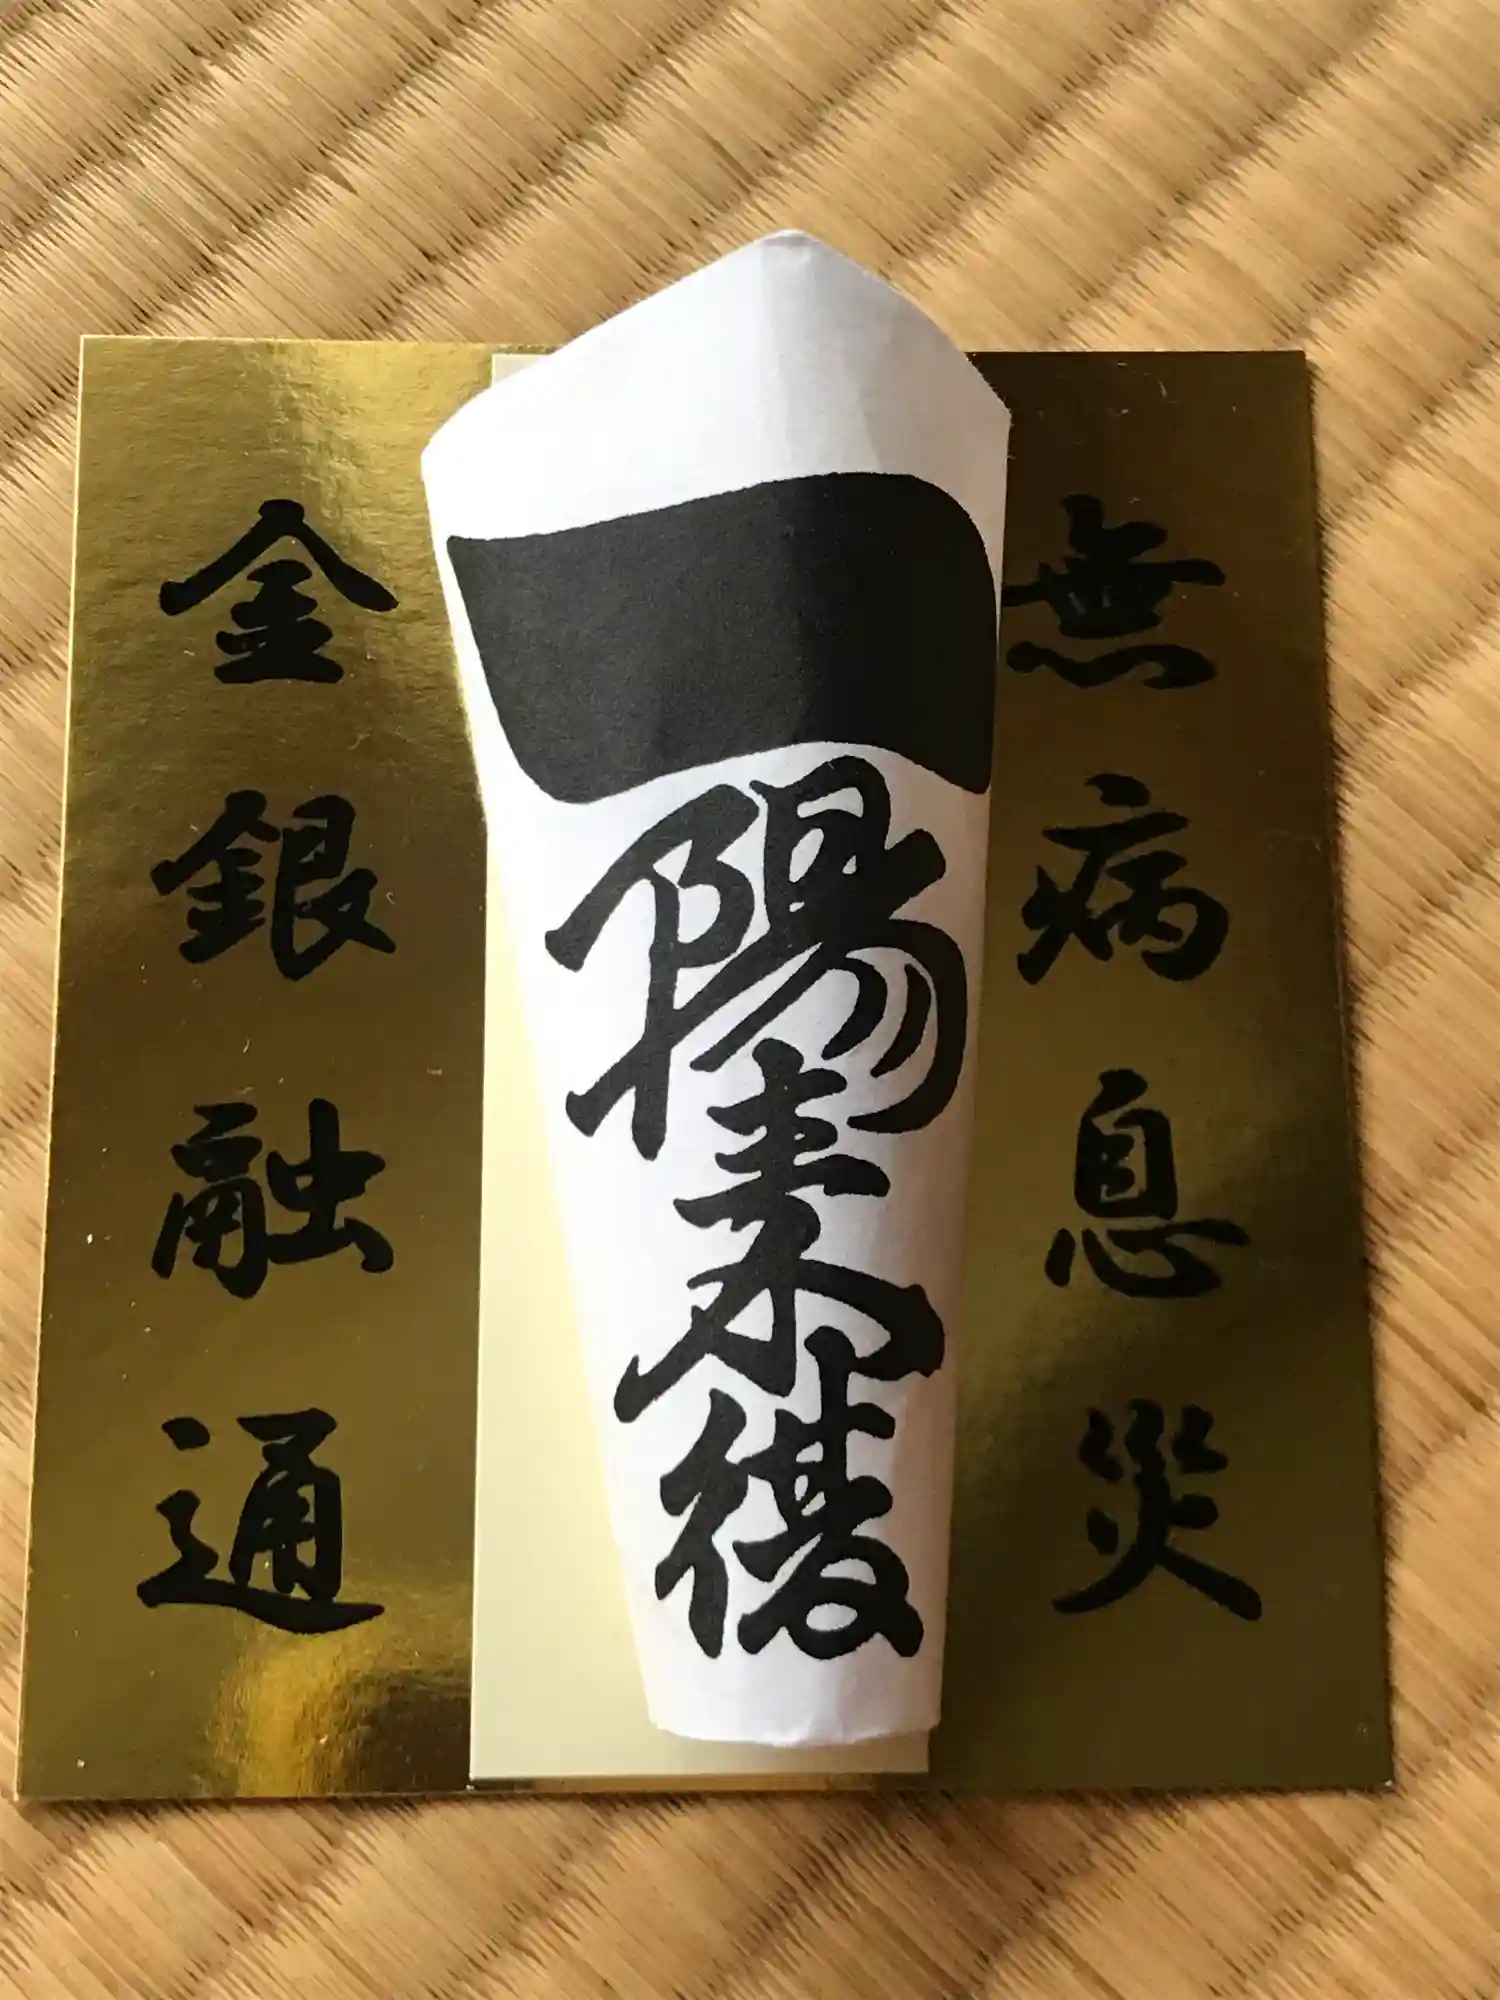 無病息災
一陽来復
金銀融通